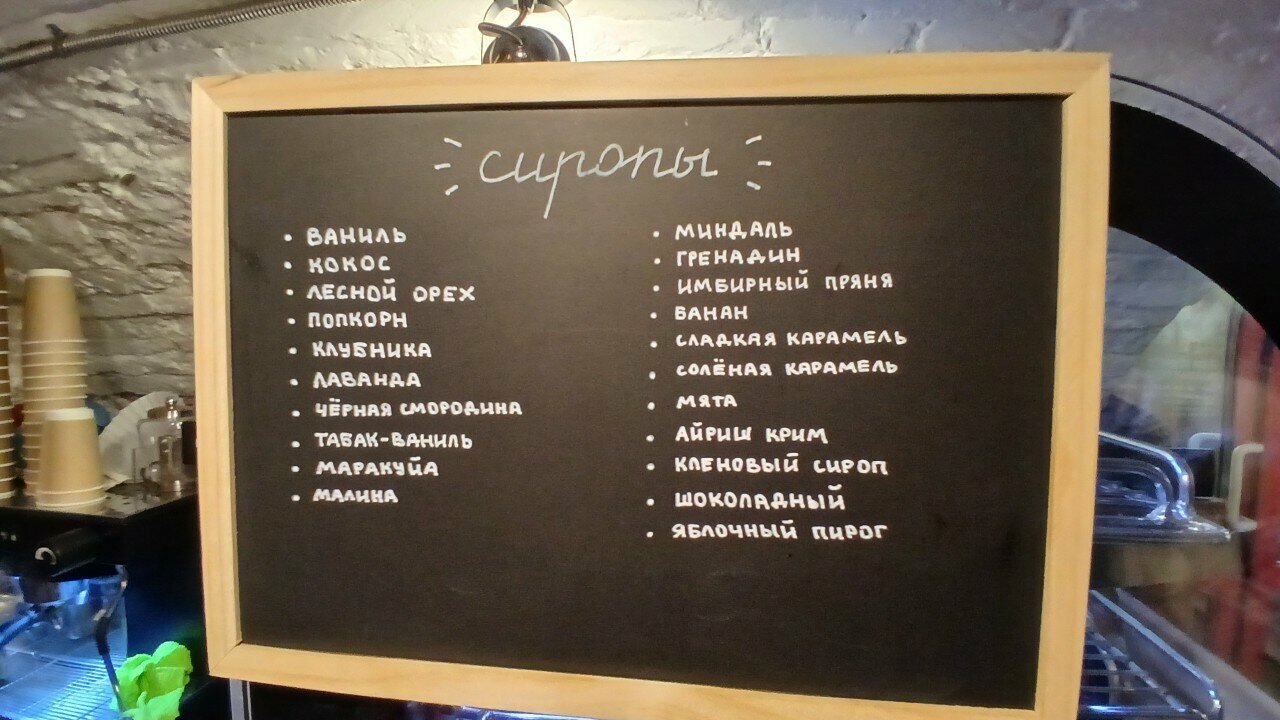 сиропы
• ВАНИЛЬ
• КОКОС
• ЛЕСНОЙ ОРЕХ
• ПОПКОРН
• КЛУБНИКА
• ЛАВАНДА
• ЧЁРНАЯ СМОРОДИНА
• ТАБАК-ВАНИЛЬ
• МАРАКУЙА
• МАЛИНА
• МИНДАЛЬ
• ГРЕНАДИН
• ИМБИРНЫЙ ПРЯНЯ
• БАНАН
• СЛАДКАЯ КАРАМЕЛЬ
• СОЛЁНАЯ КАРАМЕЛЬ
• МЯТА
• АЙРИШ КРИМ
• КЛЕНОВЫЙ СИРОП
• ШОКОЛАДНЫЙ
• ЯБЛОЧНЫЙ ПИРОГ